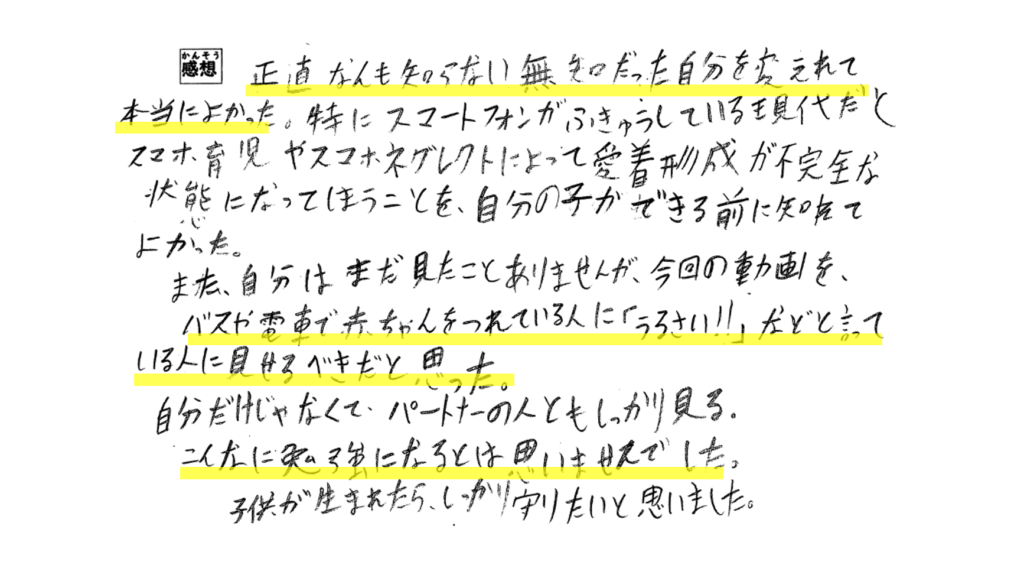 かんそう
感想
正直なんも知らない無知だった自分を変えれて
本当によかった。特にスマートフォンがふきゅうしている現代だと
スマホ育児やスマホネグレクトによって愛着形成が不完全な
状態になってしまうことを、自分の子ができる前に知れて
よかった。
また、自分はまだ見たことありませんが、今回の動画を、
バスや電車で赤ちゃんをつれている人に「うるさい!!」などと言って
いる人に見せるべきだと思った。
自分だけじゃなくて、パートナーの人ともしっかり見る.
こんなに勉強になるとは思いませんでした。
子供が生まれたら、しっかり守りたいと思いました。